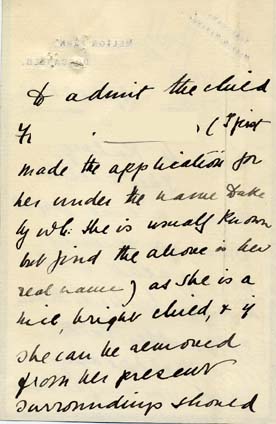 to admit the child
(I first
made the application for
her under the name Dake
by wh: she is usually known
but find the above is her
real name) as she is a
nice, bright child, & if
she can be removed
from her present
surroundings should